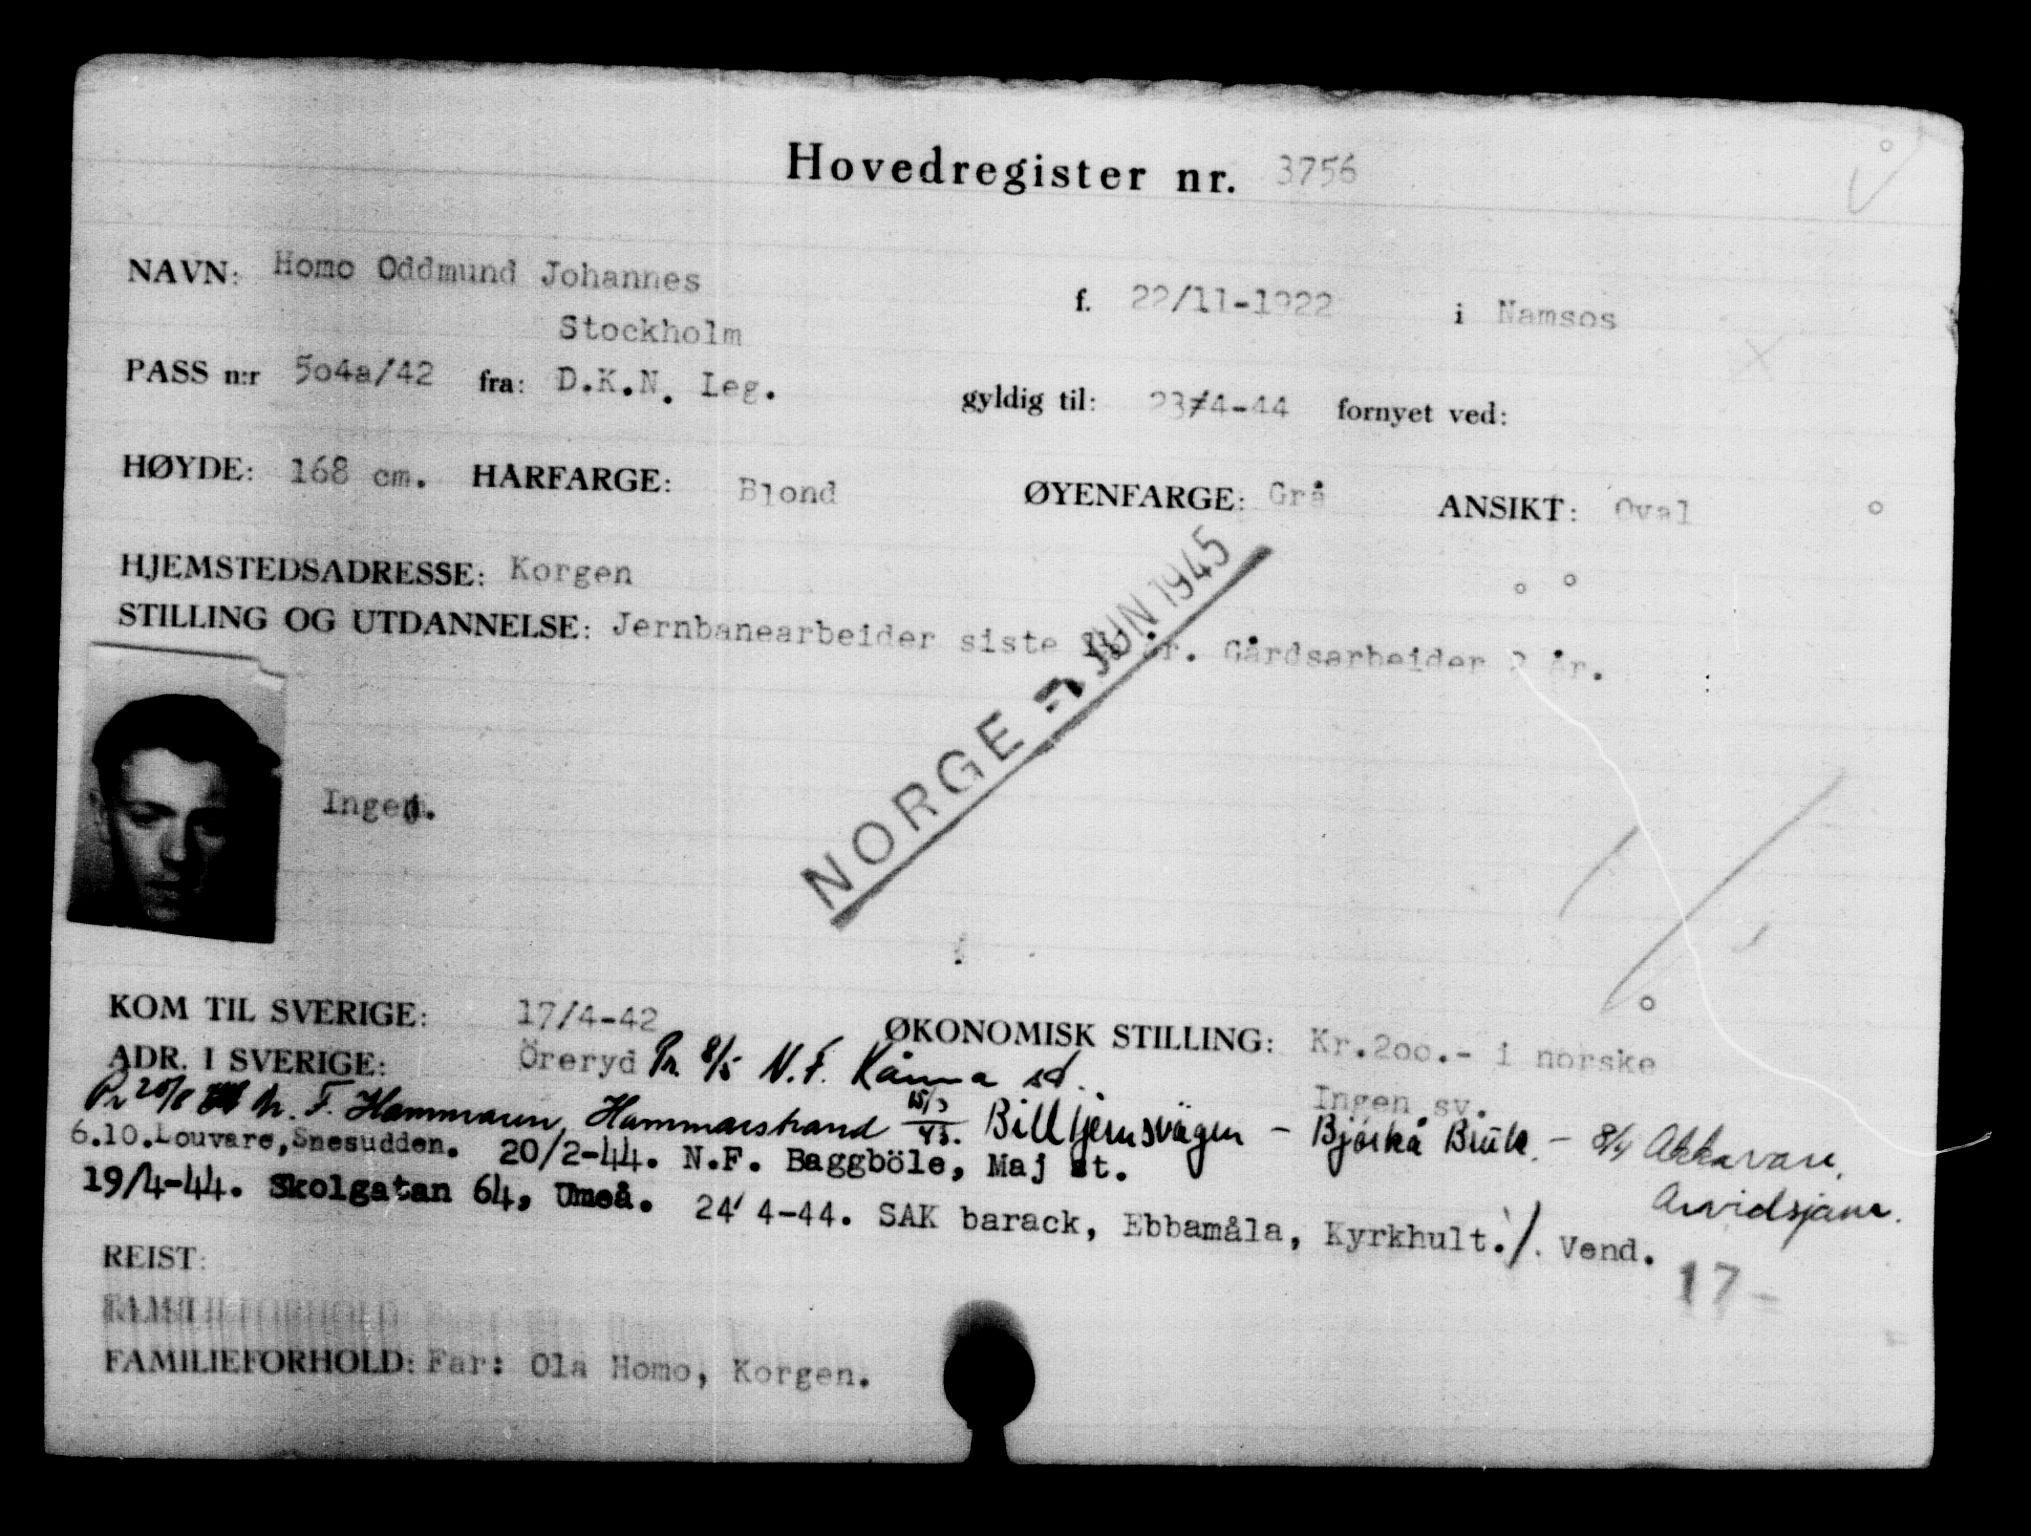 Hovedregister nr. 3756
NAVN: Homo Oddmund Johannes f. 22/11-1922 i Namsos
Stockholm
PASS n:r 504a/42 fra: D.K.N. Leg. gyldig til: 23/4-44 fornyet ved:
HØYDE: 168 cm. HÅRFARGE: Blond ØYENFARGE: Grå ANSIKT: Oval
HJEMSTEDSADRESSE: Korgen
STILLING OG UTDANNELSE: Jernbanearbeider siste år. Gårdsarbeider 2 år.
NORGE - 7 JUN 1945
Ingen.
KOM TIL SVERIGE: 17/4-42 ØKONOMISK STILLING: Kr.200.- i norske
ADR. I SVERIGE: Öreryd Pr. 8/5 N.F. Kånna sd. Ingen sv.
Pr 20/8 N. F. Hammaren, Hammarstrand 15/3 43. Billtjernsvägen - Bjørkå Bruk. - 8/4 Akkavare,
Arvidsjaur.
6.10. Louvare, Snesudden. 20/2-44. N.F. Baggböle, Maj st.
19/4-44. Skolgatan 64, Umeå. 24/4-44. SAK barack, Ebbamåla, Kyrkhult./. Vend.
17-
REIST:
FAMILIEFORHOLD: Far: Ola Homo, Korgen.